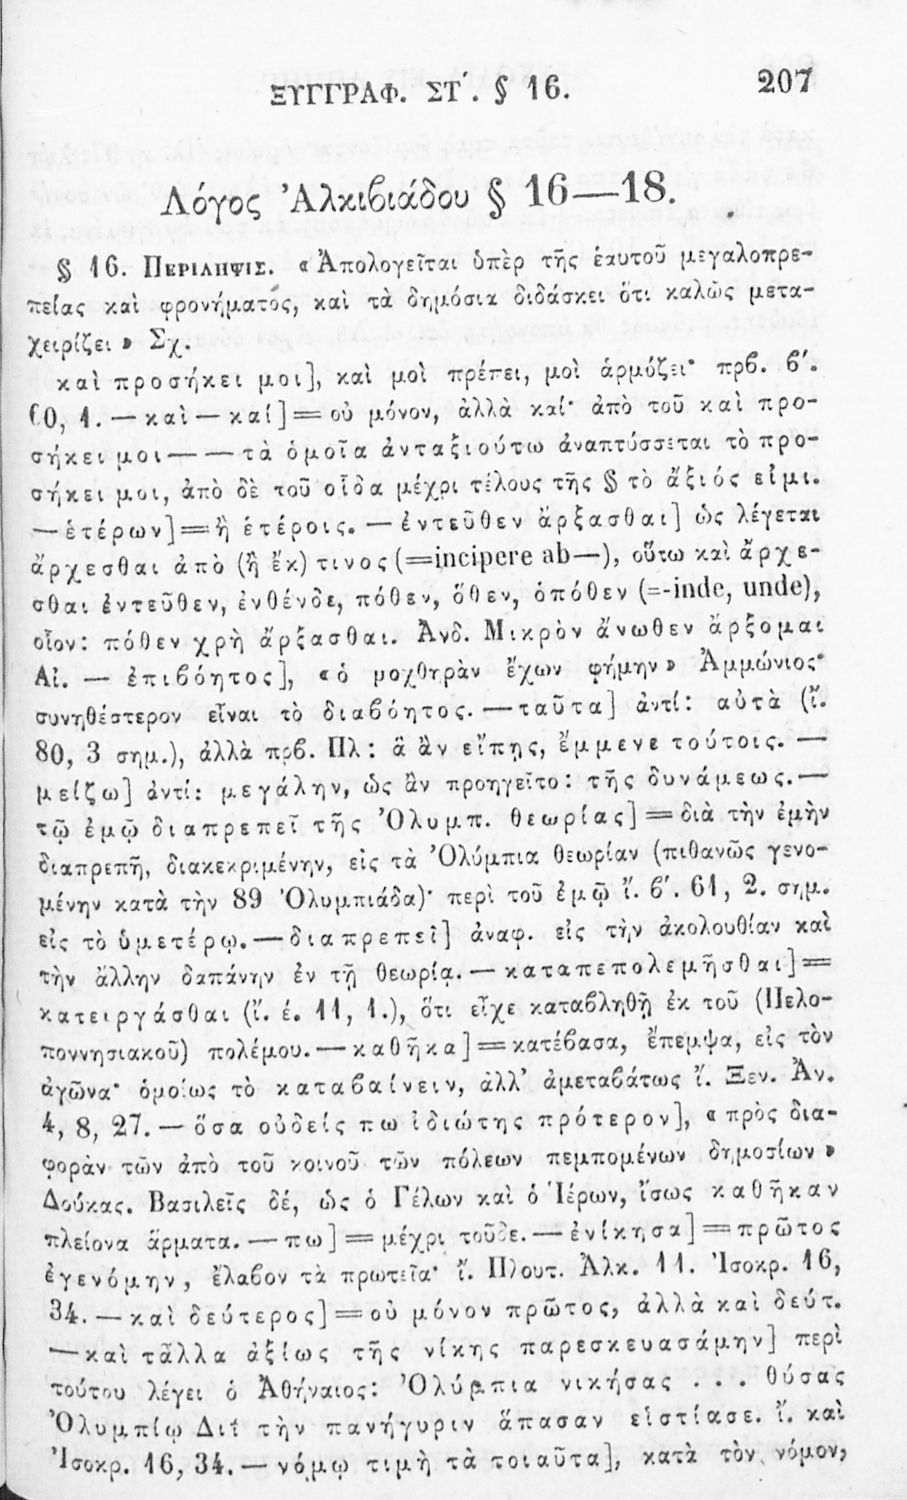 ΞΥΓΓΡΑΦ. ΣΤ΄. § 16. 207
Λόγος Ἀλκιβιάδου § 16—18.
§ 16. Περιληψις. «Ἀπολογεῖται ὑπὲρ τῆς ἑαυτοῦ μεγαλοπρε-
πείας καὶ φρονήματος, καὶ τὰ δημόσια διδάσκει ὅτι καλῶς μετα-
χειρίζει» Σχ.
καὶ προσήκει μοι], καὶ μοὶ πρέπει, μοὶ ἁρμόζει· πρβ. β΄.
60, 1. — καὶ — καί] = οὐ μόνον, ἀλλὰ καί· ἀπὸ τοῦ καὶ προ-
σήκει μοι — — τὰ ὁμοῖα ἀνταξιούτω ἀναπτύσσεται τὸ προ-
σήκει μοι, ἀπὸ δὲ τοῦ οἶδα μέχρι τέλους τῆς § τὸ ἄξιός εἰμι.
— ἑτέρων] = ἢ ἑτέροις. — ἐντεῦθεν ἄρξασθαι] ὡς λέγεται
ἄρχεσθαι ἀπὸ (ἢ ἔκ) τινος (=incipere ab—), οὕτω καὶ ἄρχε-
σθαι ἐντεῦθεν, ἐνθένδε, πόθεν, ὅθεν, ὁπόθεν (=-inde, unde),
οἷον: πόθεν χρὴ ἄρξασθαι. Ἀνδ. Μικρὸν ἄνωθεν ἄρξομαι
Αἰ. — ἐπιβόητος], «ὁ μοχθηρὰν ἔχων φήμην» Ἀμμώνιος·
συνηθέστερον εἶναι τὸ διαβόητος. — ταῦτα] ἀντί: αὐτὰ (ἴ.
80, 3 σημ.), ἀλλὰ πρβ. Πλ: ἃ ἂν εἴπῃς, ἔμμενε τούτοις. —
μείζω] ἀντί: μεγάλην, ὡς ἂν προηγεῖτο: τῆς δυνάμεως. —
τῷ ἐμῷ διαπρεπεῖ τῆς Ὀλυμπ. θεωρίας] = διὰ τὴν ἐμὴν
διαπρεπῆ, διακεκριμένην, εἰς τὰ Ὀλύμπια θεωρίαν (πιθανῶς γενο-
μένην κατὰ τὴν 89 Ὀλυμπιάδα)· περὶ τοῦ ἐμῷ ἴ. β΄. 61, 2. σημ.
εἰς τὸ ὑμετέρῳ. — διαπρεπεῖ] ἀναφ. εἰς τὴν ἀκολουθίαν καὶ
τὴν ἄλλην δαπάνην ἐν τῇ θεωρίᾳ. — καταπεπολεμῆσθαι] =
κατειργάσθαι (ἴ. έ. 11, 1.), ὅτι εἶχε καταβληθῆ ἐκ τοῦ (Πελο-
ποννησιακοῦ) πολέμου. — καθῆκα] = κατέβασα, ἔπεμψα, εἰς τὸν
ἀγῶνα· ὁμοίως τὸ καταβαίνειν, ἀλλ’ ἀμεταβάτως ἴ. Ξεν. Ἀν.
4, 8, 27. — ὅσα οὐδείς πω ἰδιώτης πρότερον], «πρὸς δια-
φορὰν τῶν ἀπὸ τοῦ κοινοῦ τῶν πόλεων πεμπομένων δημοσίων»
Δούκας. Βασιλεῖς δέ, ὡς ὁ Γέλων καὶ ὁ Ἱέρων, ἴσως καθῆκαν
πλείονα ἅρματα. — πω] = μέχρι τοῦδε. — ἐνίκησα] = πρῶτος
ἐγενόμην, ἔλαβον τὰ πρωτεῖα· ἴ. Πλουτ. Ἀλκ. 11. Ἰσοκρ. 16,
34. — καὶ δεύτερος] = οὐ μόνον πρῶτος, ἀλλὰ καὶ δεύτ.
— καὶ τἆλλα ἀξίως τῆς νίκης παρεσκευασάμην] περὶ
τούτου λέγει ὁ Ἀθήναιος: Ὀλύμπια νικήσας . . . θύσας
Ὀλυμπίῳ Διῒ τὴν πανήγυριν ἅπασαν εἱστίασε. ἴ. καὶ
Ἰσοκρ. 16, 34. — νόμῳ τιμὴ τὰ τοιαῦτα], κατὰ τὸν νόμον,